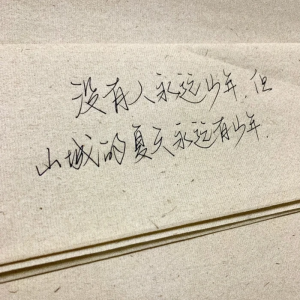 没有人永远少年,但
山城的夏天永远有少年.